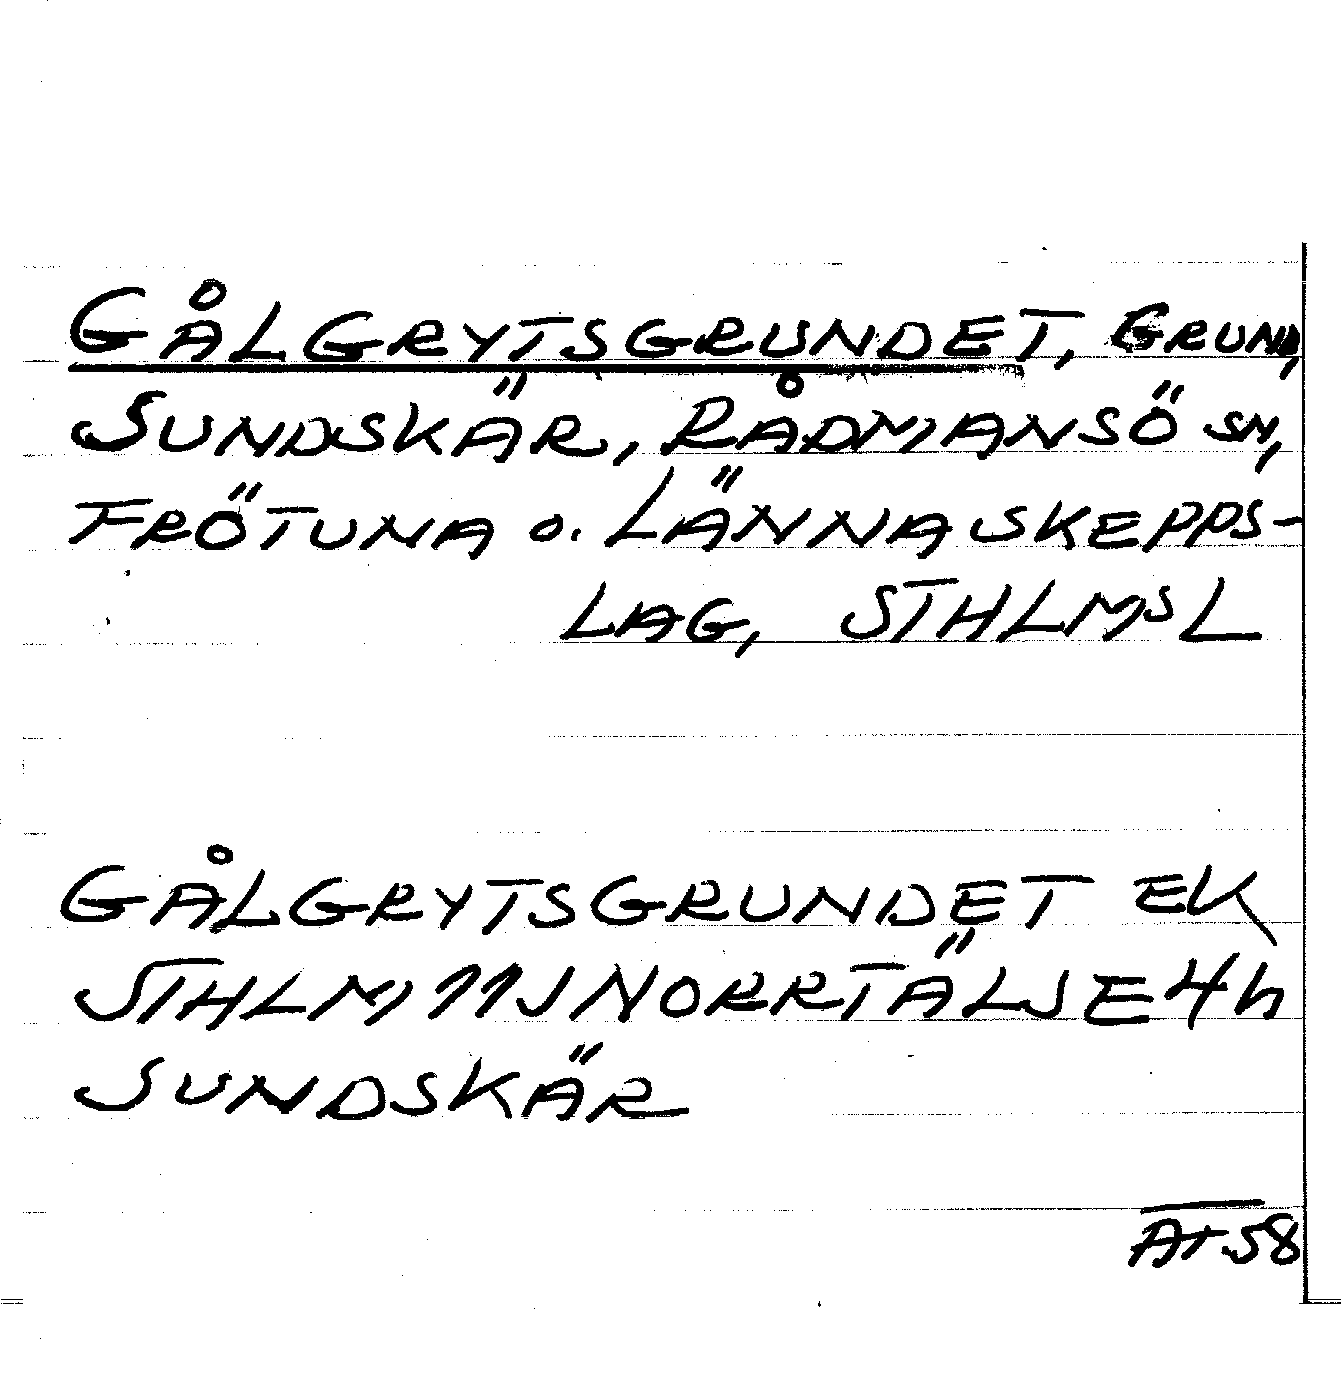 GÅLGRYTSGRUNDET, GRUND,
SUNDSKÄR, RÅDMANSÖ SN,
FRÖTUNA O. LÄNNA SKEPPS-
LAG, STHLMS L
GÅLGRYTSGRUNDET EK
STHLM 11J NORRTÄLJE 4h
SUNDSKÄR
AT 58